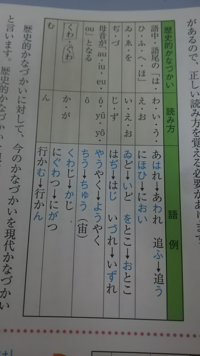 があるので、正しい読み方を覚える必要がありま
歴史的かなづかい 読み方 語例
語中・語尾の「は・ひ・ふ・へ・ほ」 わ・い・う・え・お あはれ→あわれ 追ふ→追う にほひ→におい
ゐ・ゑ・を い・え・お ゐど→いど をとこ→おとこ
ぢ・づ じ・ず はぢ→はじ いづれ→いずれ
母音が、au・iu・eu・ouとなる ō・yū・yō・ō やうやく→ようやく ちう→ちゅう(宙)
くわ・ぐわ か・が くわじ→かじ にぐわつ→にがつ
む ん 行かむ→行かん
と言います。歴史的かなづかいに対して、今のかなづかいを現代かなづかい